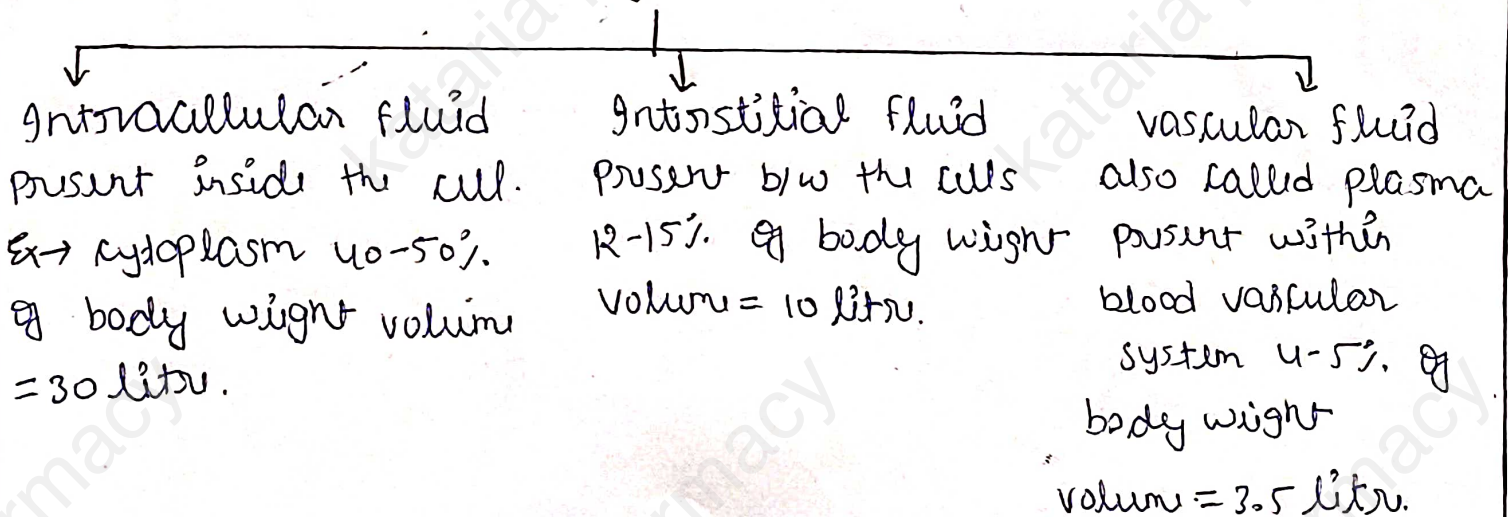 Intracellular fluid
present inside the cell.
Ex→ cytoplasm 40-50%.
of body weight volume
= 30 litre.
Interstitial fluid
present b/w the cells
12-15%. of body weight
volume = 10 litre.
vascular fluid
also called plasma
present within
blood vascular
system 4-5%. of
body weight
volume = 3.5 litre.
kataria
kataria
rmacy
armacy
armacy